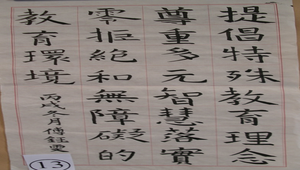 提倡特殊教育理念
尊重多元智慧落實
零拒絕和無障礙的
教育環境
丙戌冬月傅鈺雯
13